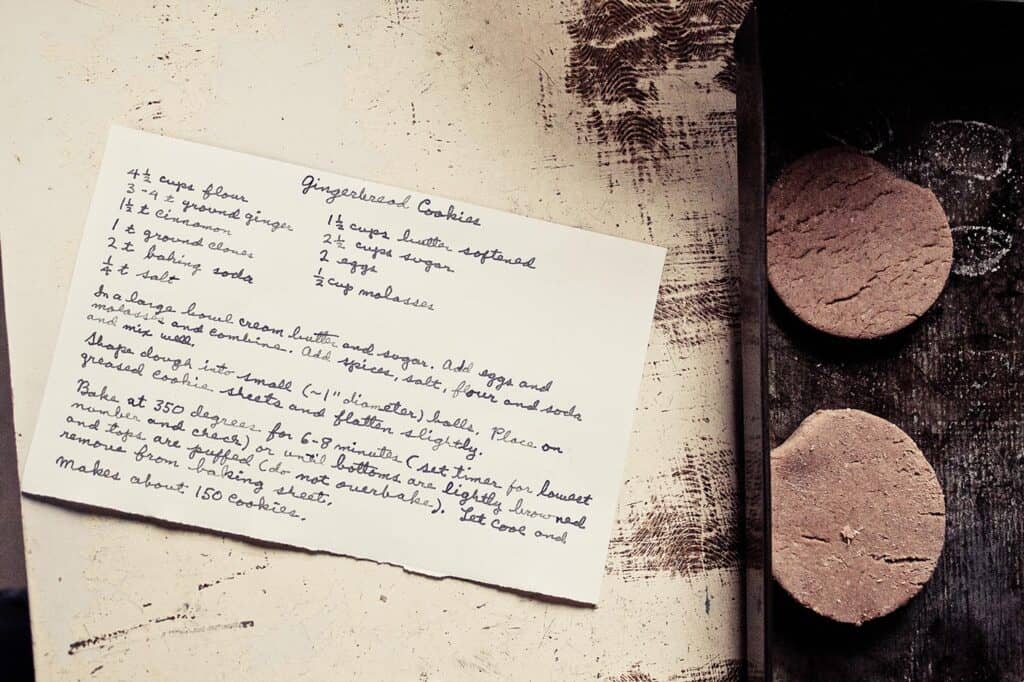 Gingerbread Cookies
4½ cups flour
3-4 t ground ginger
1½ t cinnamon
1 t ground cloves
2 t baking soda
¼ t salt
1½ cups butter softened
2½ cups sugar
2 eggs
½ cup molasses
In a large bowl cream butter and sugar. Add eggs and
molasses and combine. Add spices, salt, flour and soda
and mix well.
Shape dough into small (~1" diameter) balls. Place on
greased cookie sheets and flatten slightly.
Bake at 350 degrees for 6-8 minutes (set timer for lowest
number and check) or until bottoms are lightly browned
and tops are puffed (do not overbake). Let cool and
remove from baking sheet.
Makes about 150 cookies.